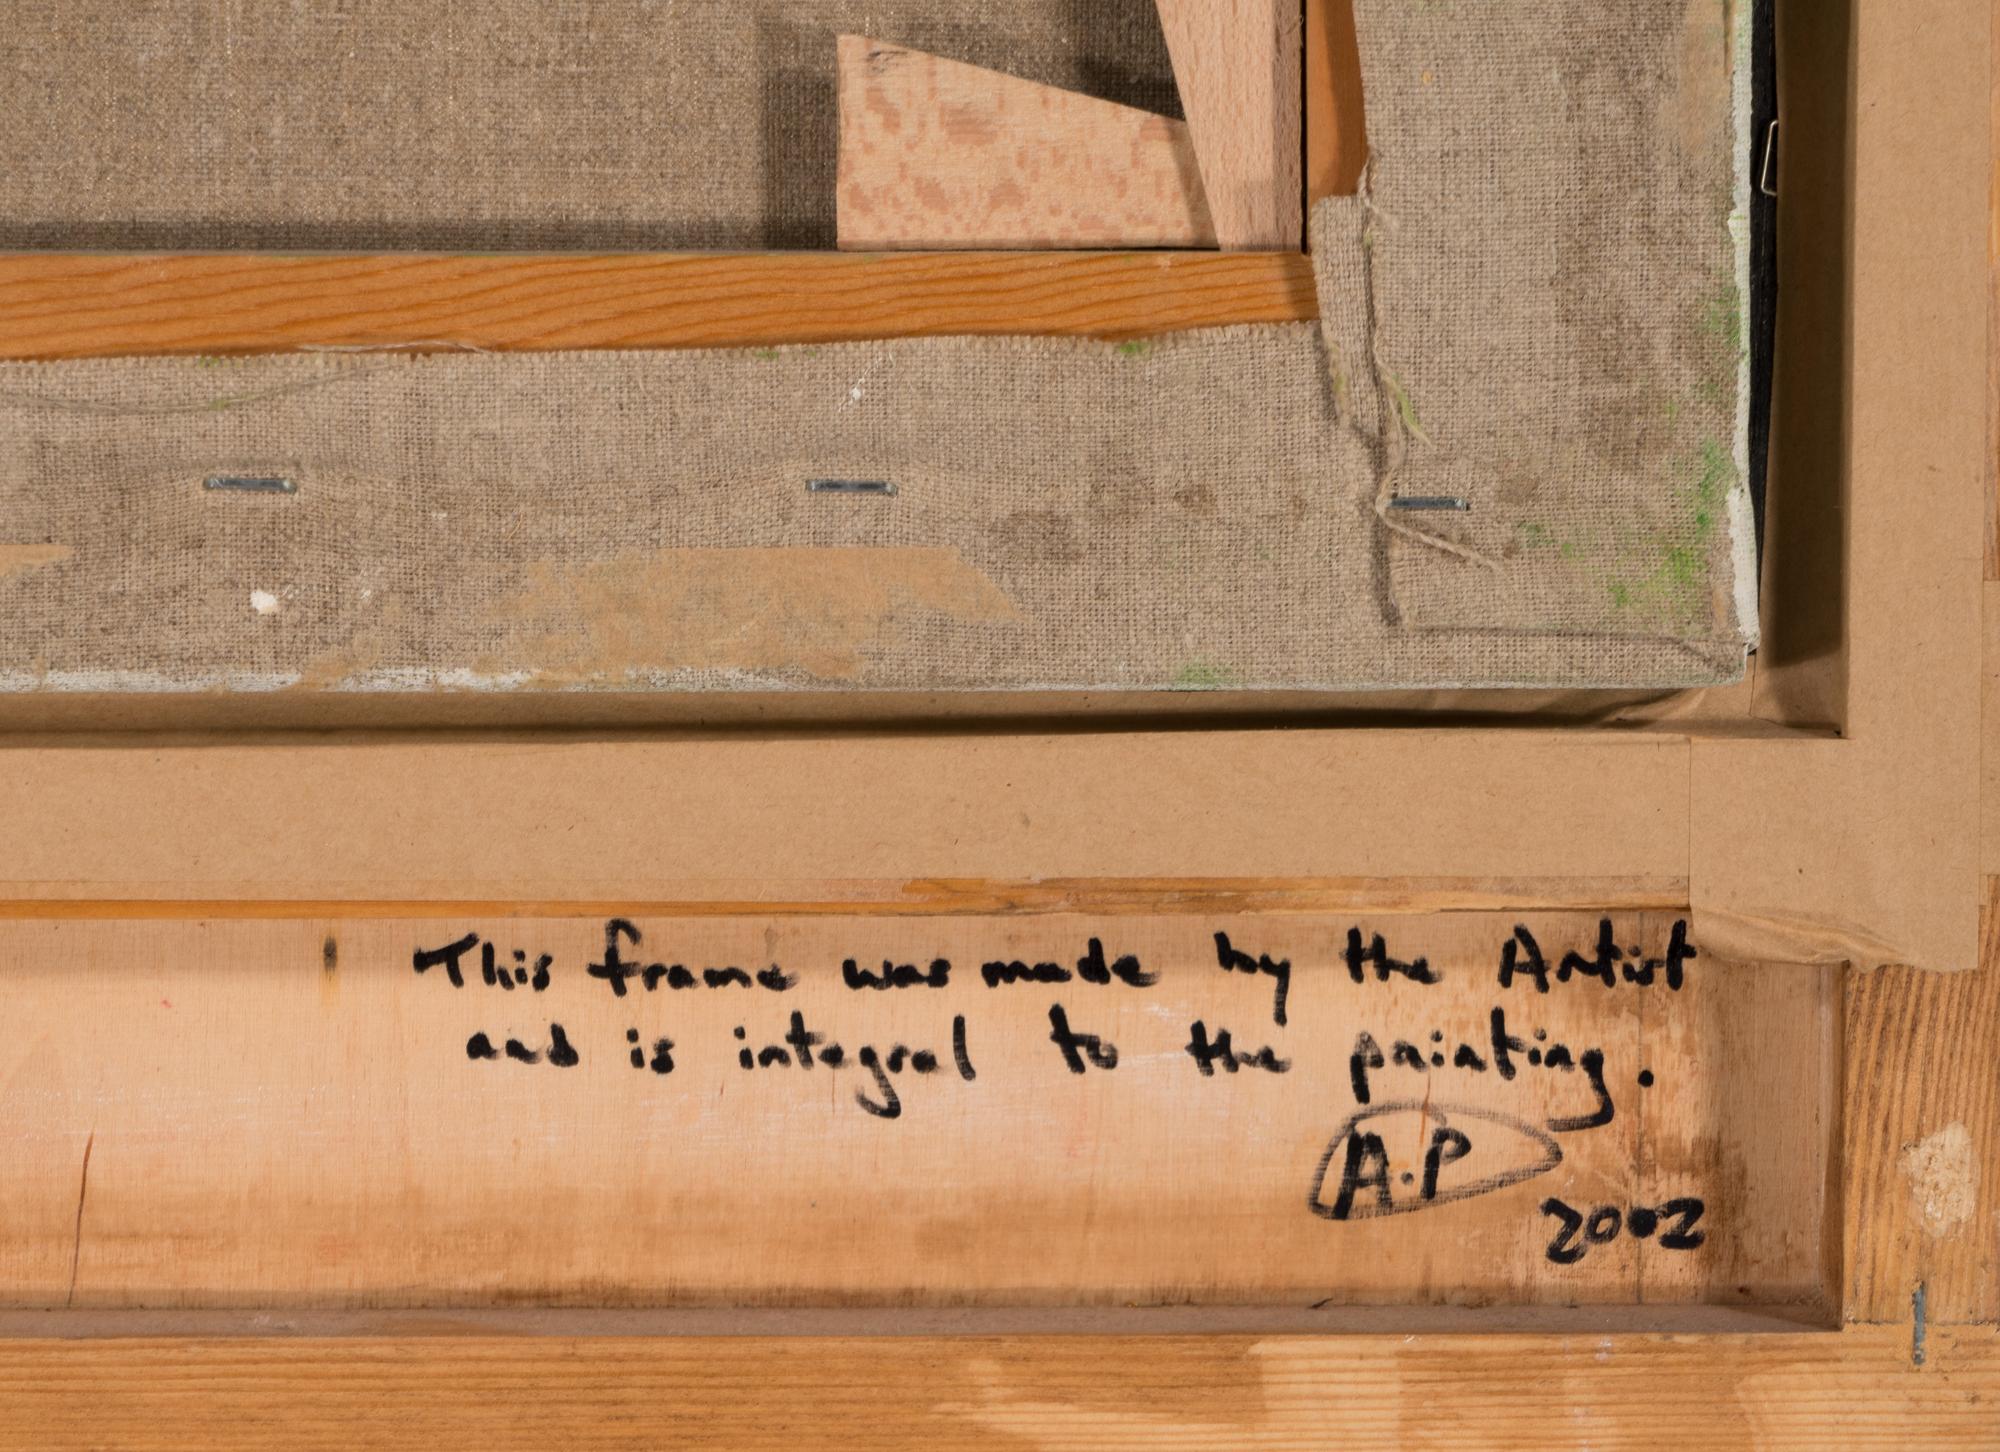 This frame was made by the Artist
and is integral to the painting.
A.P
2002